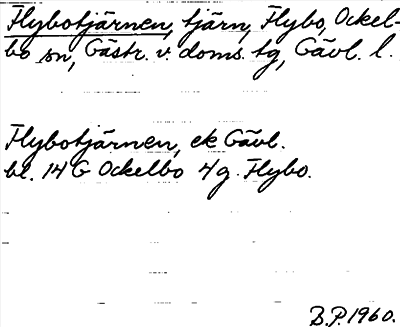 Flybotjärnen, tjärn, Flybo, Ockel-
bo sn, Gästr. v. doms. tg, Gävl. l.
Flybotjärnen, ek Gävl.
bl. 14 G Ockelbo 4g. Flybo.
B.P. 1960.